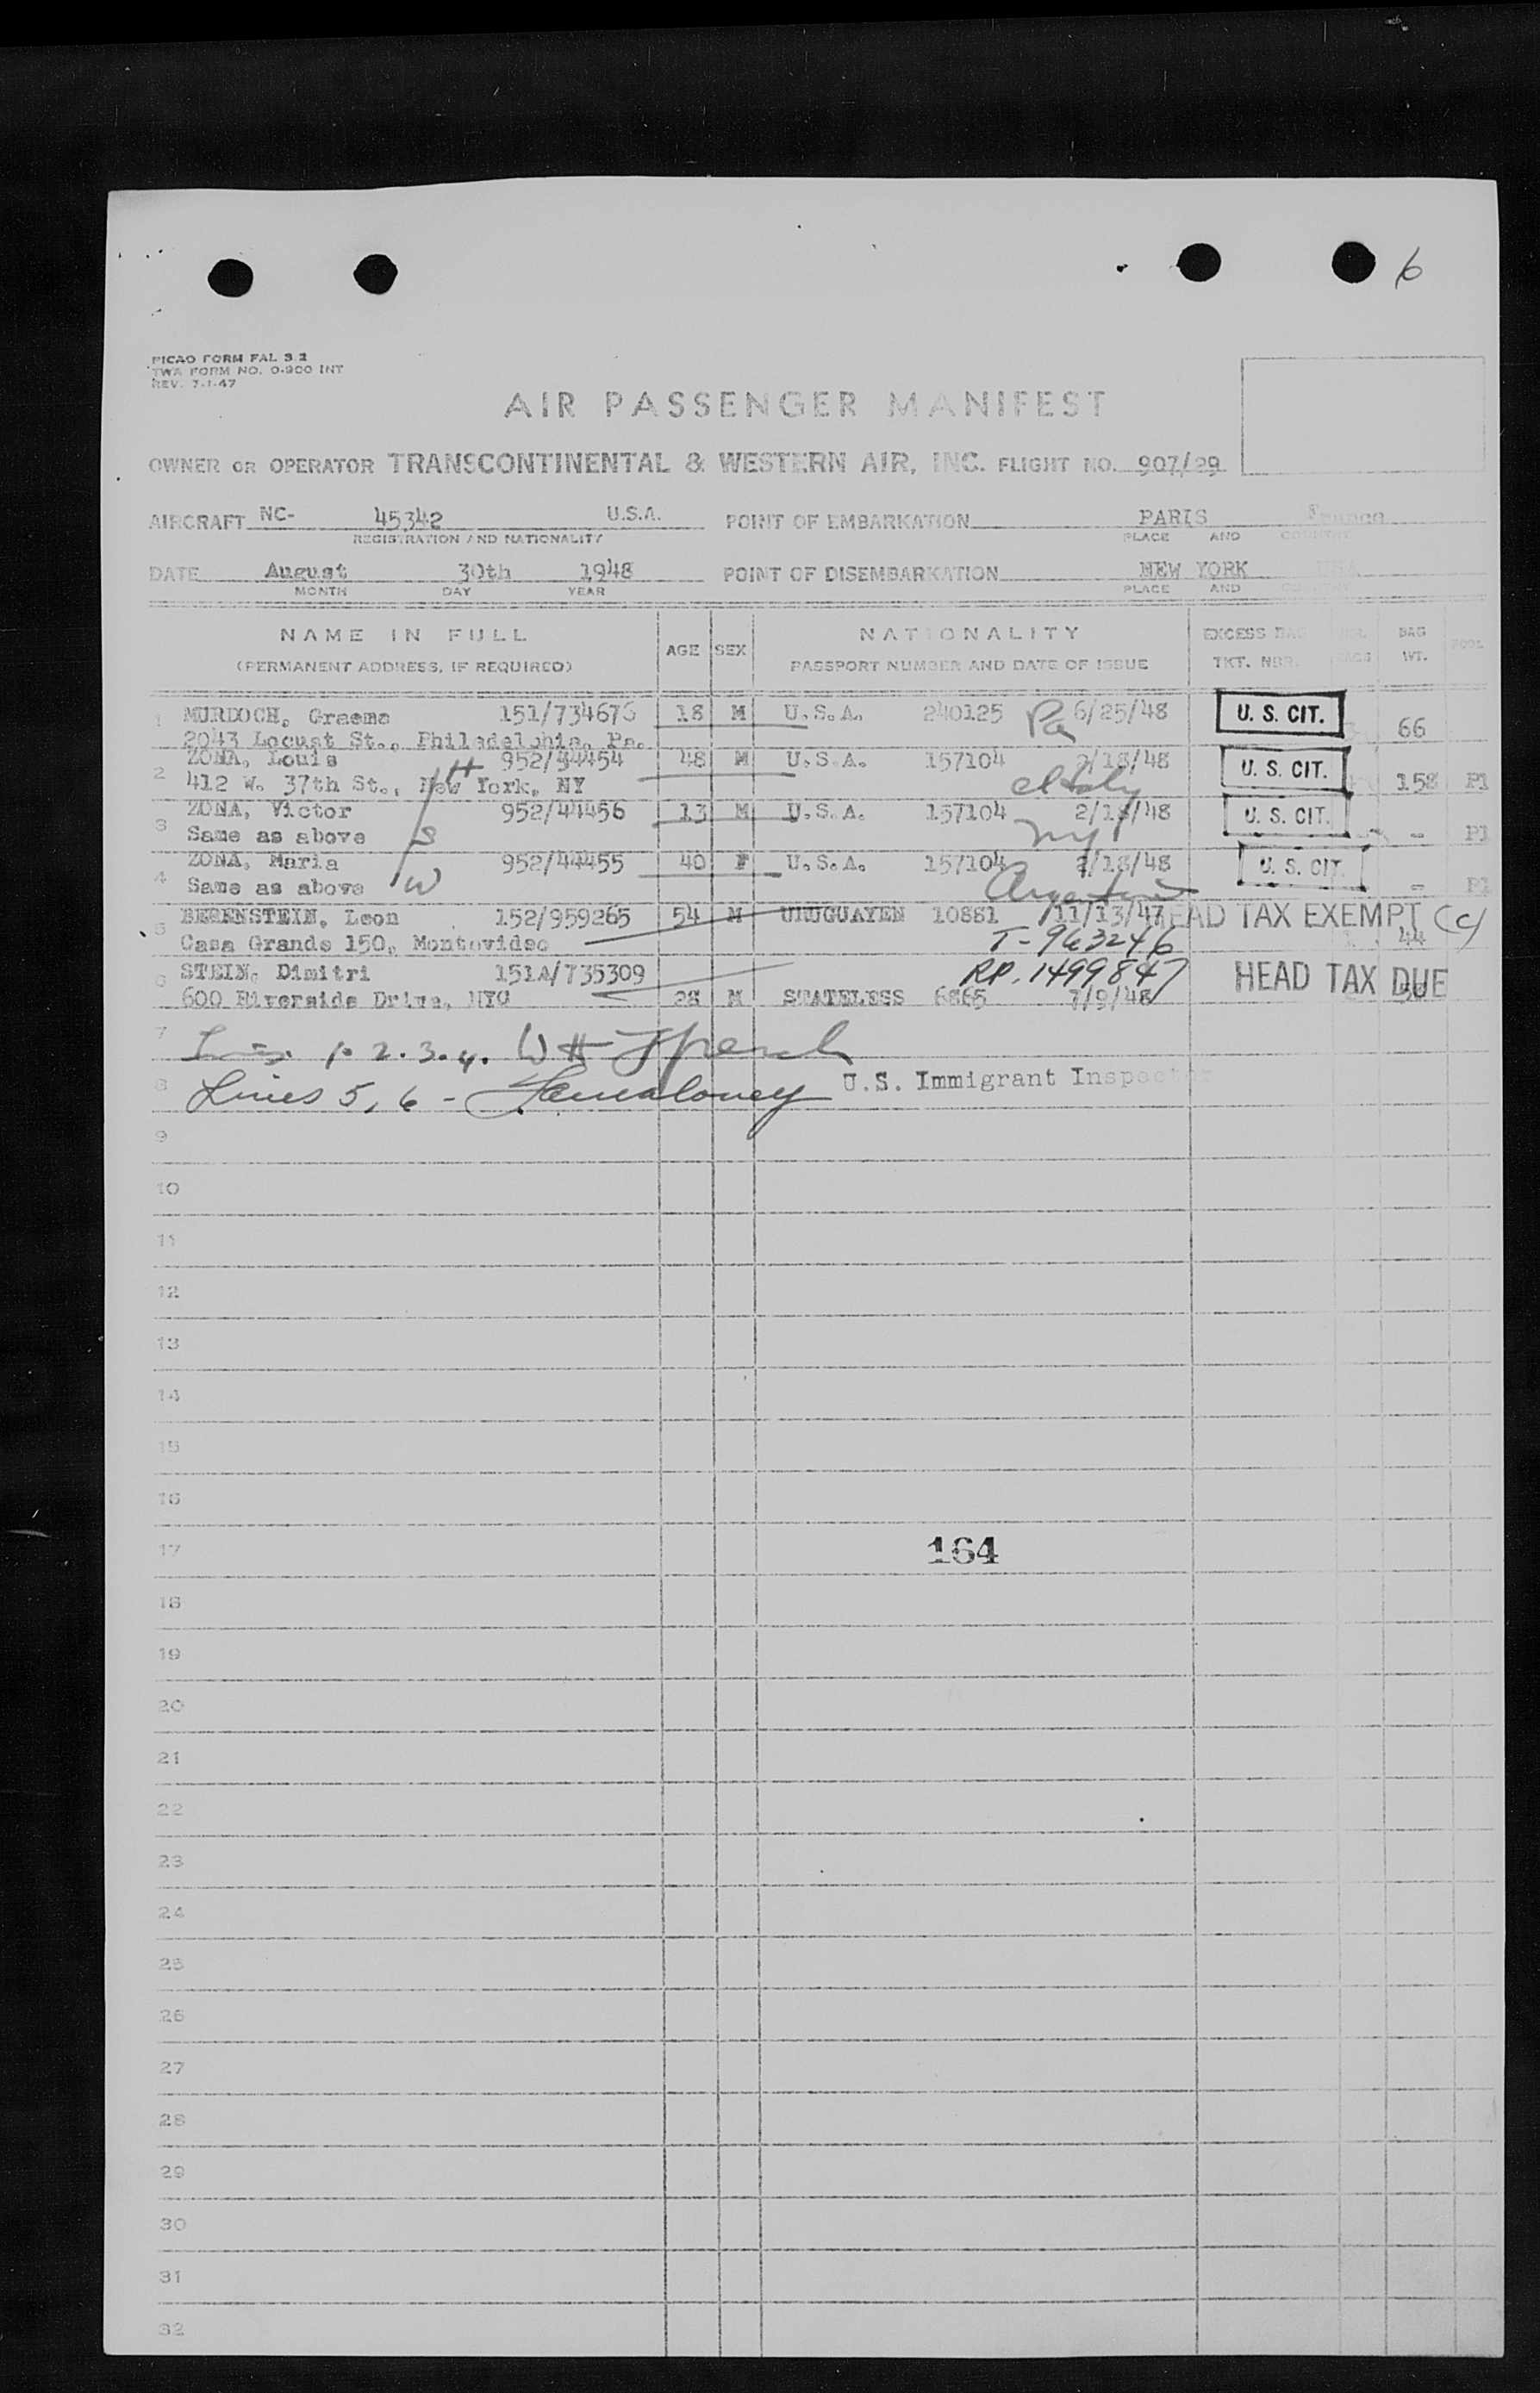 6
PICAO FORM FAL 3.2
TWA FORM NO. O-900 INT
REV. 7-1-47
AIR PASSENGER MANIFEST
OWNER OR OPERATOR TRANSCONTINENTAL & WESTERN AIR, INC. FLIGHT NO. 907/29
AIRCRAFT NC- 45342 U.S.A. POINT OF EMBARKATION PARIS France
REGISTRATION AND NATIONALITY PLACE AND COUNTRY
DATE August 30th 1948 POINT OF DISEMBARKATION NEW YORK USA
MONTH DAY YEAR PLACE AND COUNTRY
NAME IN FULL AGE SEX NATIONALITY EXCESS BAG BAG POOL
(PERMANENT ADDRESS, IF REQUIRED) PASSPORT NUMBER AND DATE OF ISSUE TKT. NBR. WT.
1 MURDOCH, Graeme 151/734676 18 M U.S.A. 240125 Pa 6/25/48 U. S. CIT. 66
2043 Locust St., Philadelphia, Pa.
2 ZONA, Louis 952/44454 48 M U.S.A. 157104 2/18/48 U. S. CIT. 158 P1
412 W. 37th St., New York, NY H Italy
3 ZONA, Victor 952/44456 13 M U.S.A. 157104 2/18/48 U. S. CIT. - P1
Same as above S NY
4 ZONA, Maria 952/44455 40 F U.S.A. 157104 2/18/48 U. S. CIT. - P1
Same as above W Argentina
5 BERENSTEIN, Leon 152/959265 54 M URUGUAYEN 10881 11/13/47 HEAD TAX EXEMPT (c) 44
Casa Grande 150, Montevideo T-963246
6 STEIN, Dimitri 151A/735309 RP. 1499847 HEAD TAX DUE
600 Riverside Drive, NYC 28 M STATELESS 6865 7/9/48
7 Lines 1. 2. 3. 4. W H French
8 Lines 5, 6 - Maloney U.S. Immigrant Inspector
9
10
11
12
13
14
15
16
17 164
18
19
20
21
22
23
24
25
26
27
28
29
30
31
32